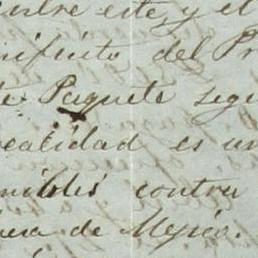 entre este, y el
nifiesto del Pr
te Paquete segu
realidad es un
nibles contra
era de Mejico.